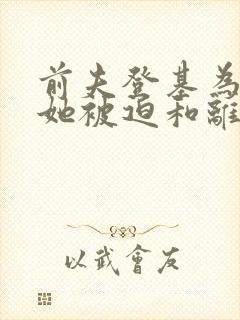 前夫登基為
她被迫和離
以武會友